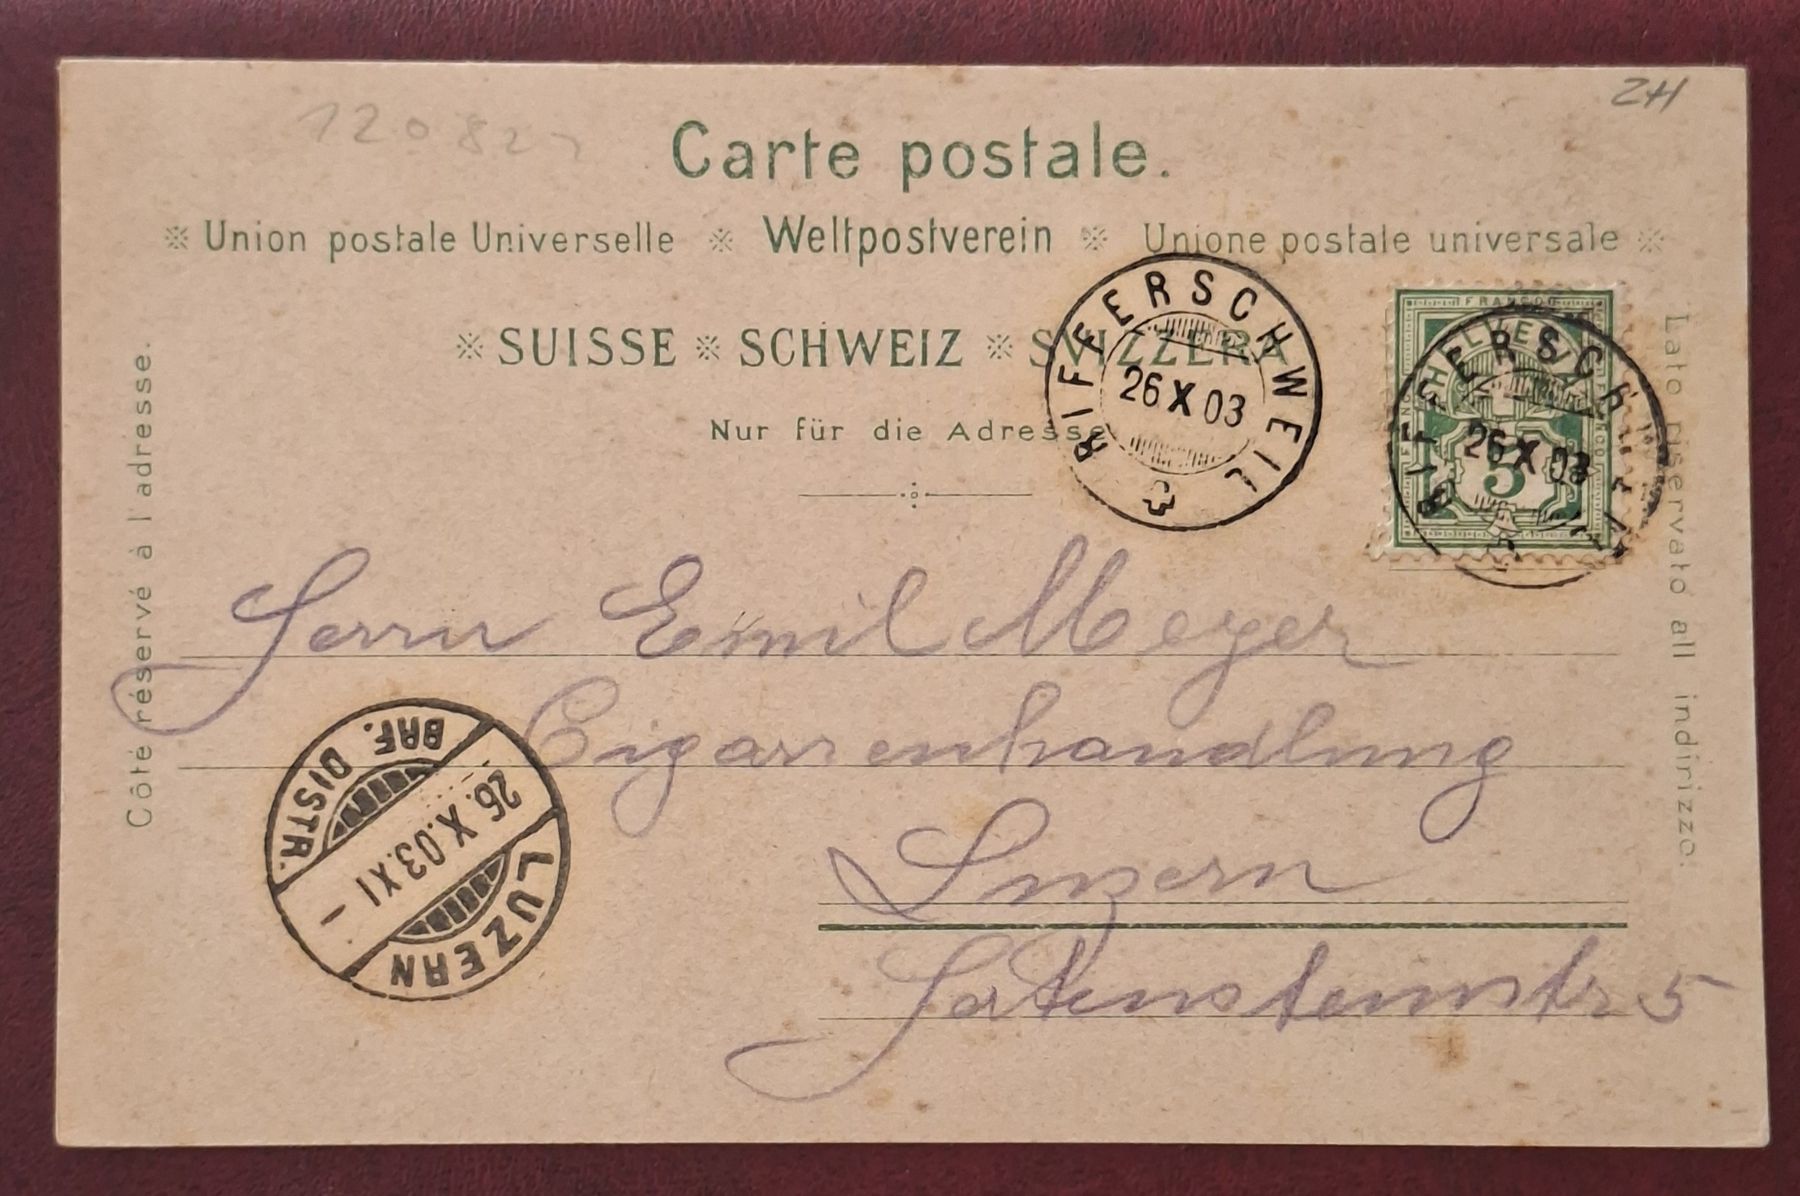 ZH
12082
Carte postale.
※ Union postale Universelle ※ Weltpostverein ※ Unione postale universale ※
※ SUISSE ※ SCHWEIZ ※ SVIZZERA
Nur für die Adresse
Côté réservé à l'adresse.
Lato riservato all indirizzo.
RIFFERSCHWEIL
26 X 03
FRANCO
HELVETIA
FRANCO
FRANCO
5
RIFFERSCHWEIL
26 X 03
Herrn Emil Meyer
Cigarrenhandlung
Luzern
Hertensteinstr 5
BRF. DISTR.
26.X.03.XI–
LUZERN